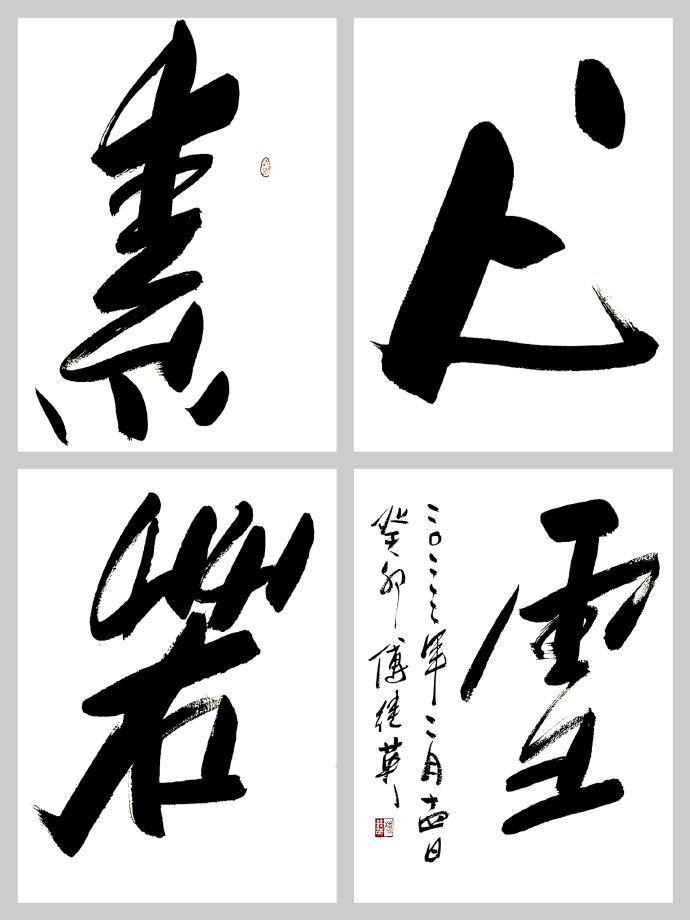 素
心
若
雪
二〇二三年二月十四日
癸卯 傅继